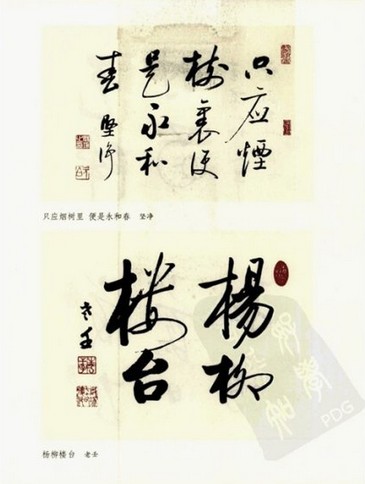 只应煙
樹裏便
是永和
春 堅净
只应烟树里 便是永和春 坚净
楊柳
楼台
老壬
杨柳楼台 老壬
PDG